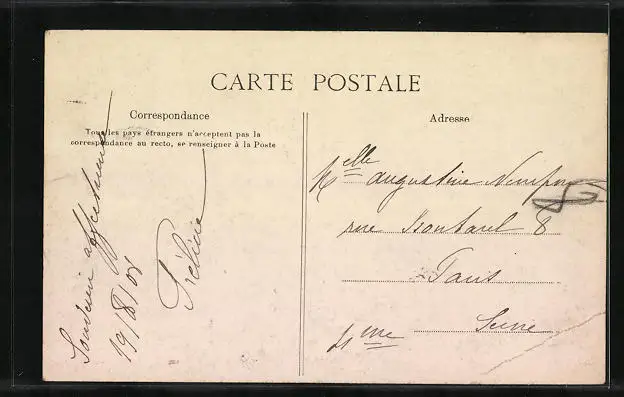 CARTE POSTALE
Correspondance
Tous les pays étrangers n'acceptent pas la
correspondance au recto, se renseigner à la Poste
Souvenir affectueux
19/8/08
Adresse
Melle Augustine
rue 8
Paris
Seine